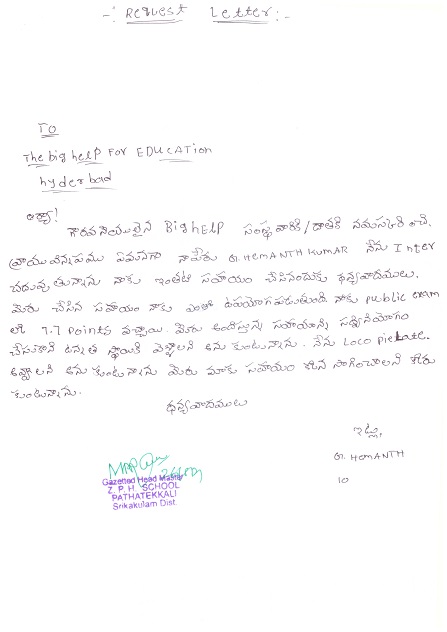 -: Request Letter:-
TO
The big help FOR EDUCATION
hyderbad
అయ్యా!
గౌరవనీయులైన Big HELP సంస్థ వారికి/దాతకి నమస్కరించి,
వ్రాయు విన్నపము ఏమనగా నాపేరు G. HEMANTH KUMAR నేను Inter
చదువుతున్నాను నాకు ఇంతటి సహాయం చేసినందుకు ధన్యవాదములు.
మీరు చేసిన సహాయం నాకు ఎంతో ఉపయోగపడుతుంది నాకు public exam
లో 7.7 Points వచ్చాయి. మీరు అందిస్తున్న సహాయాన్ని సద్వినియోగం
చేసుకొని ఉన్నత స్థాయికి వెళ్ళాలని అనుకుంటున్నాను. నేను Loco pielate.
అవ్వాలని అనుకుంటున్నాను మీరు మాకు సహాయం కొనసాగించాలని కోరు
కుంటున్నాను.
ధన్యవాదములు
ఇట్లు,
G. HEMANTH
10
Gazetted Head Master
Z. P. H. SCHOOL
PATHATEKKALI
Srikakulam Dist.